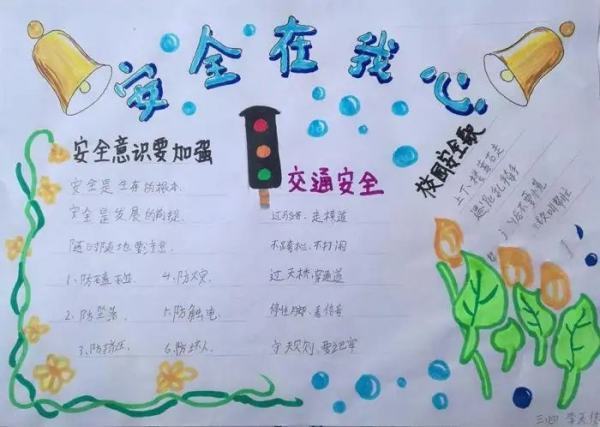 安全在我心
安全意识要加强
安全是生存的根本
安全是发展的前提
随时随地要注意
1、防磕碰 4、防火灾
2、防坠落 5、防触电
3、防挤压 6、防烧人
交通安全
过马路、走横道
不追赶、不打闹
过天桥、穿通道
停住脚、看信号
守规则、要记牢
校园安全歌
上下楼靠右走